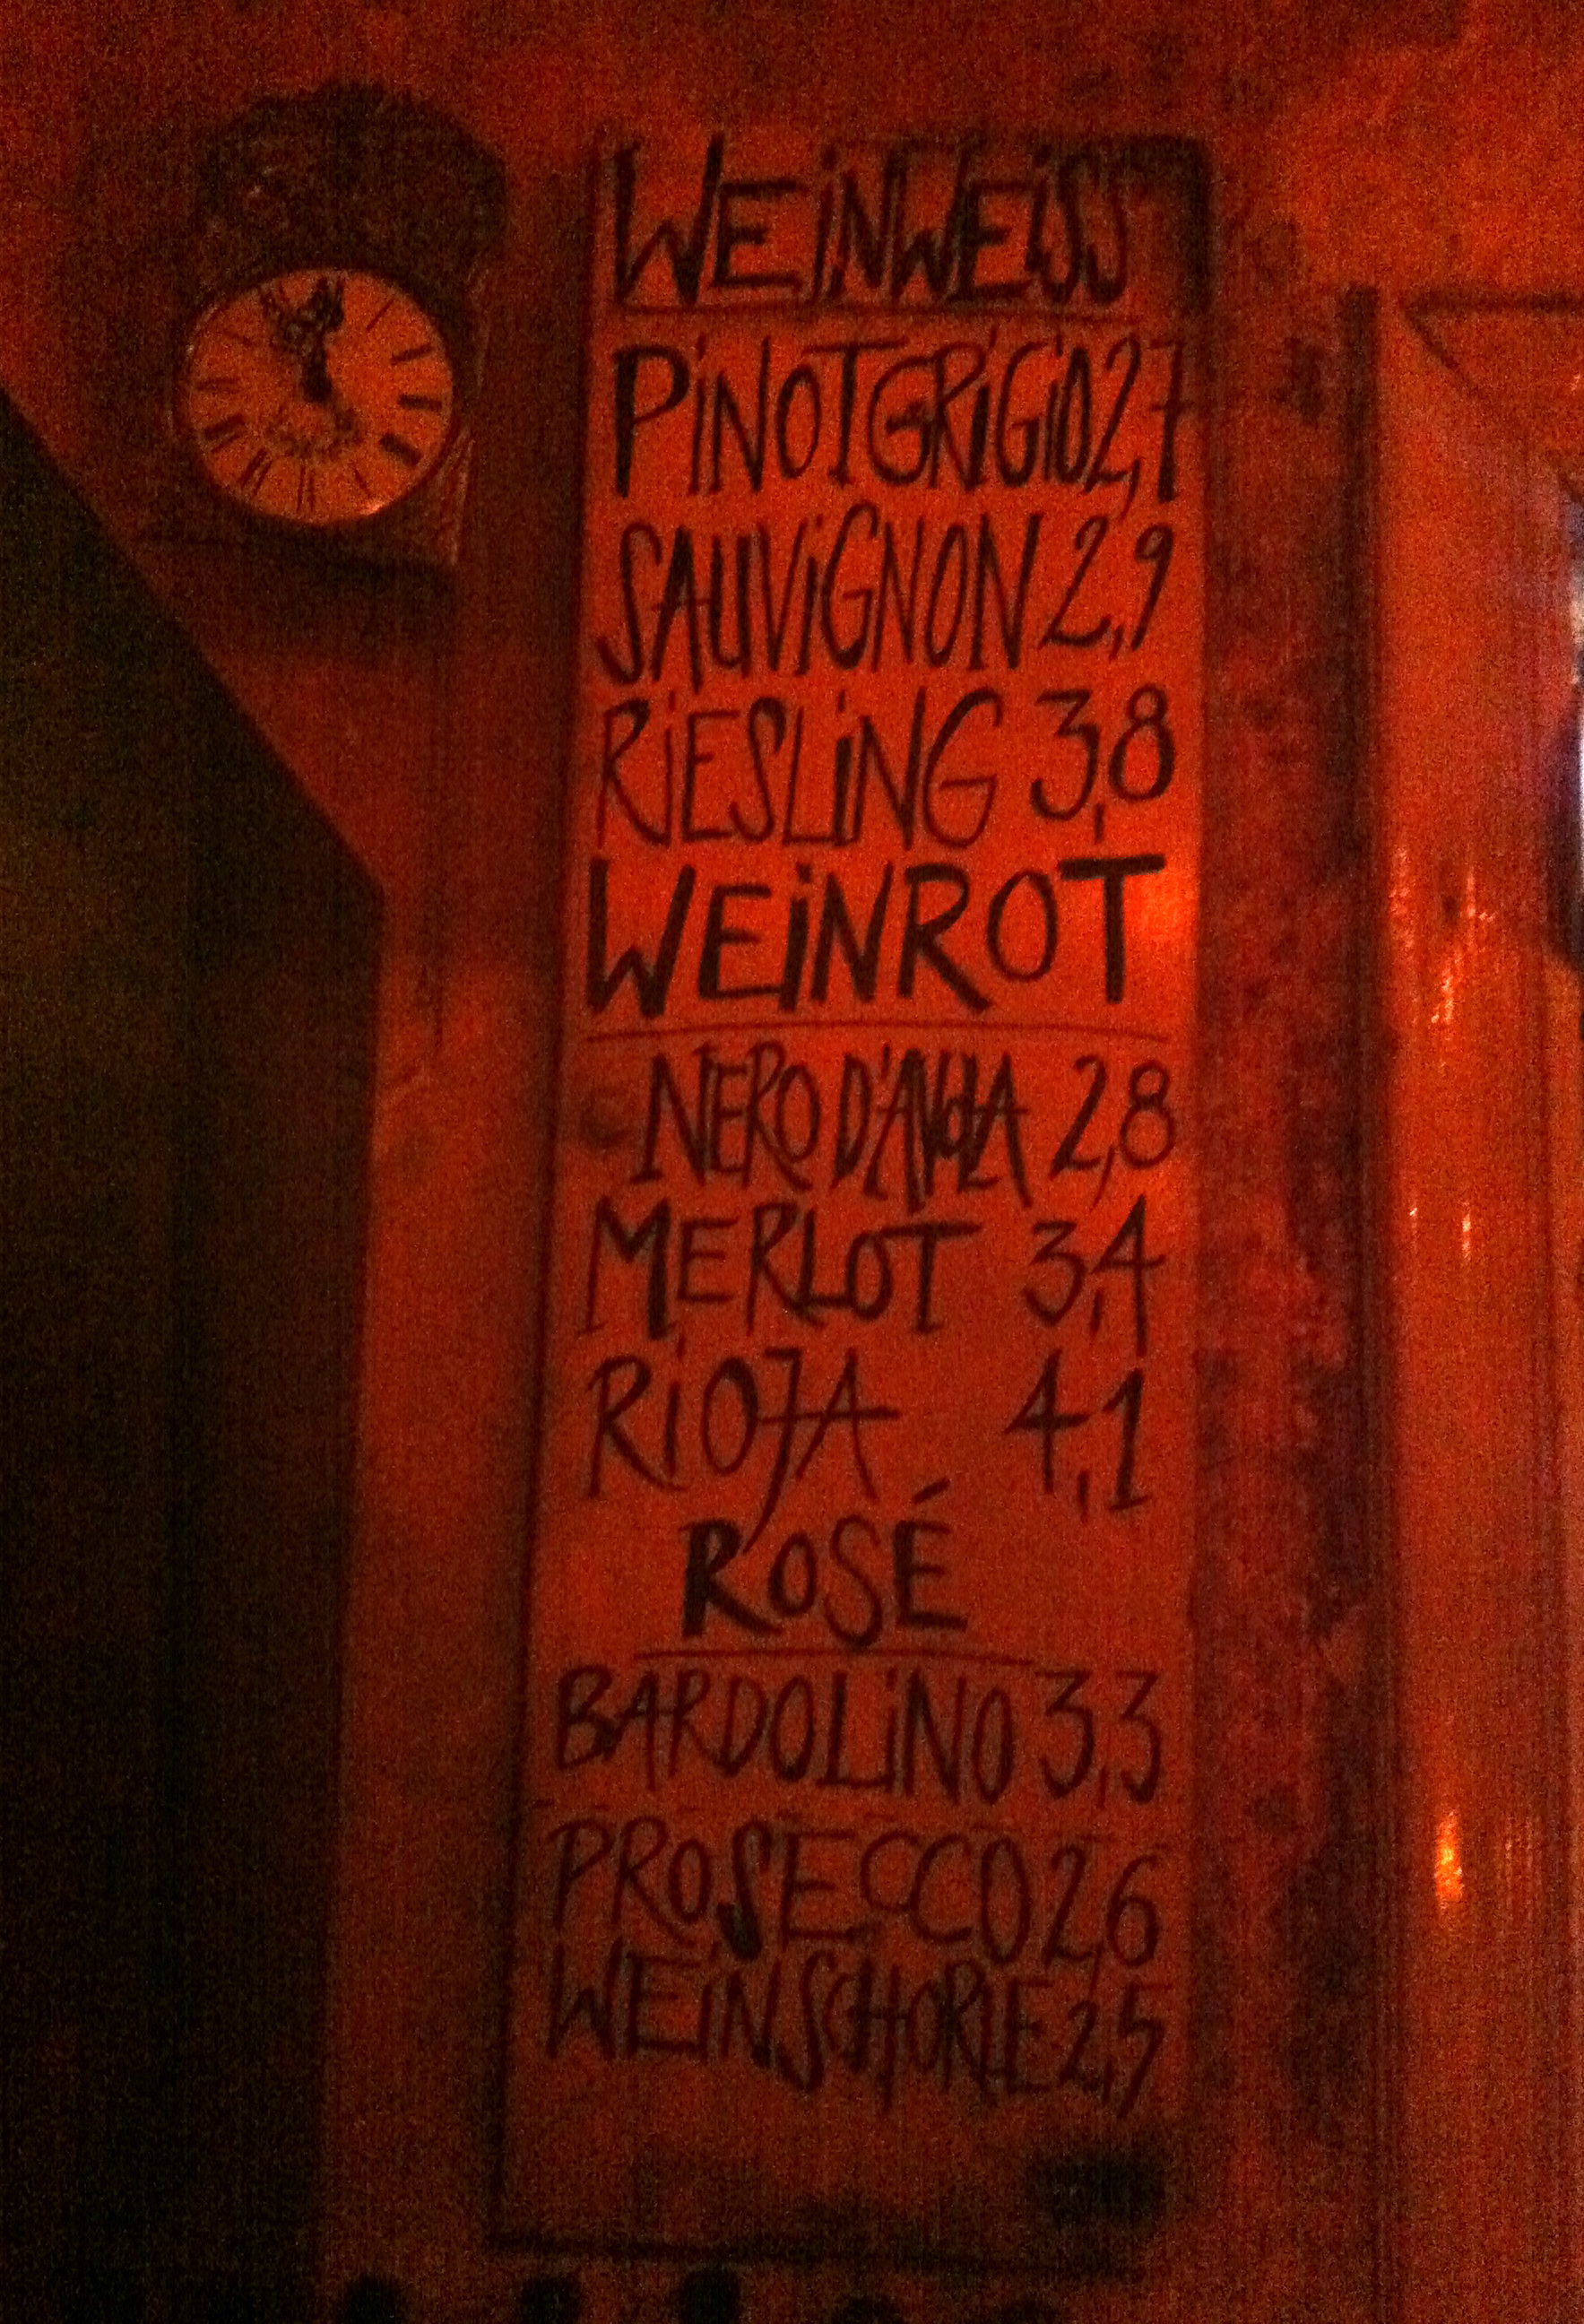 WEiNWEiSS
PiNOTGRiGiO 2,7
SAUViGNON 2,9
RiESLiNG 3,8
WEiNROT
NERO D'AVOLA 2,8
MERLOT 3,4
RiOJA 4,1
ROSÉ
BARDOLiNO 3,3
PROSECCO 2,6
WEiNSCHORLE 2,5